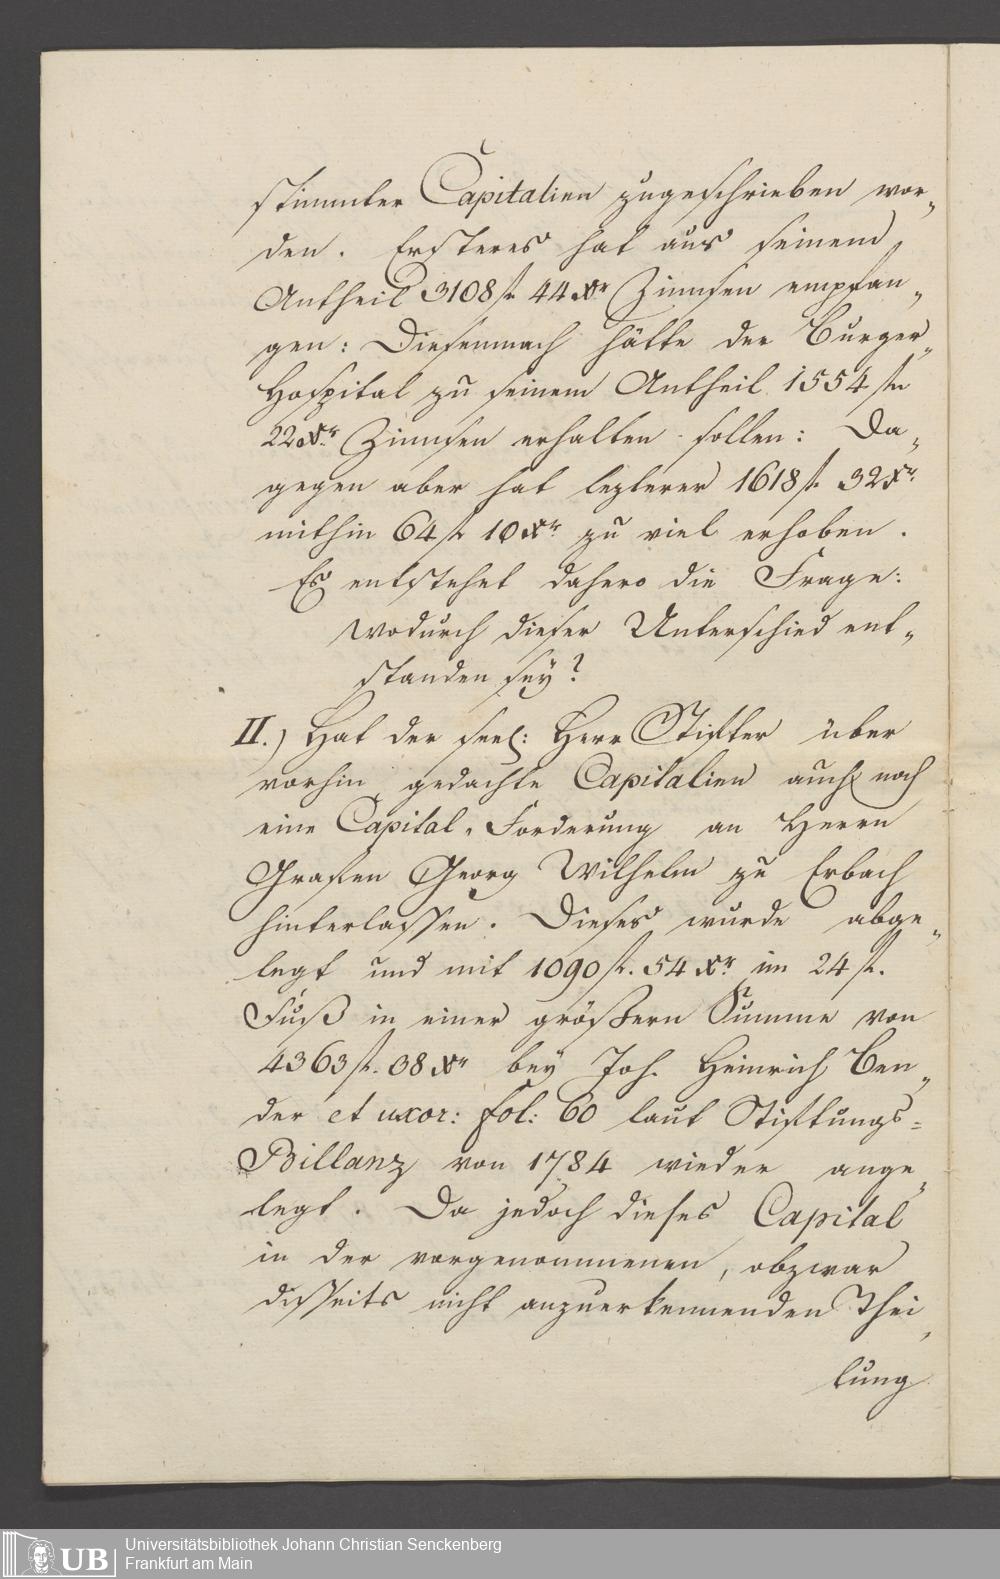 stimmter Capitalien zugeschrieben wor„
den. Ersteres hat aus seinem
Antheil 3108 f. 44 Xr Zinnsen empfan„
gen: Diesemnach hätte der Burger„
Hospital zu seinem Antheil 1554 f.
22 Xr. Zinnsen erhalten sollen: Da„
gegen aber hat lezterer 1618 f. 32 Xr.
mithin 64 f. 10 Xr. zu viel erhoben.
Es entstehet dahero die Frage:
wodurch dieser Unterschied ent„
standen sey?
II.) Hat der seel: Herr Stifter über
vorhin gedachte Capitalien auch noch
eine Capital„Forderung an Herrn
Grafen Georg Wilhelm zu Erbach
hinterlassen. Dieses wurde abge„
legt und mit 1090 f. 54 Xr. im 24 f.
Fuß in einer größern Summe von
4363 f. 38 Xr bey Joh. Heinrich Ben„
der et uxor: fol: 60 laut Stiftungs=
Billanz von 1784 wieder ange„
legt. Da jedoch dieses Capital
in der vorgenommenen, obzwar
disseits nicht anzuerkennenden Thei„
lung
UB
Universitätsbibliothek Johann Christian Senckenberg
Frankfurt am Main